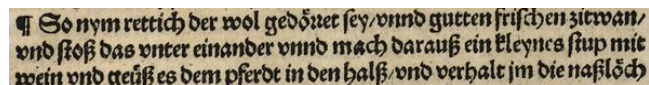 ¶ So nym rettich der wol gedörret sey/vnnd gutten frischen zitwan/
vnd stoß das vnter einander vnnd mach darauß ein kleynes stup mit
wein vnd geüß es dem pferdt in den halß/vnd verhalt jm die naßlöch